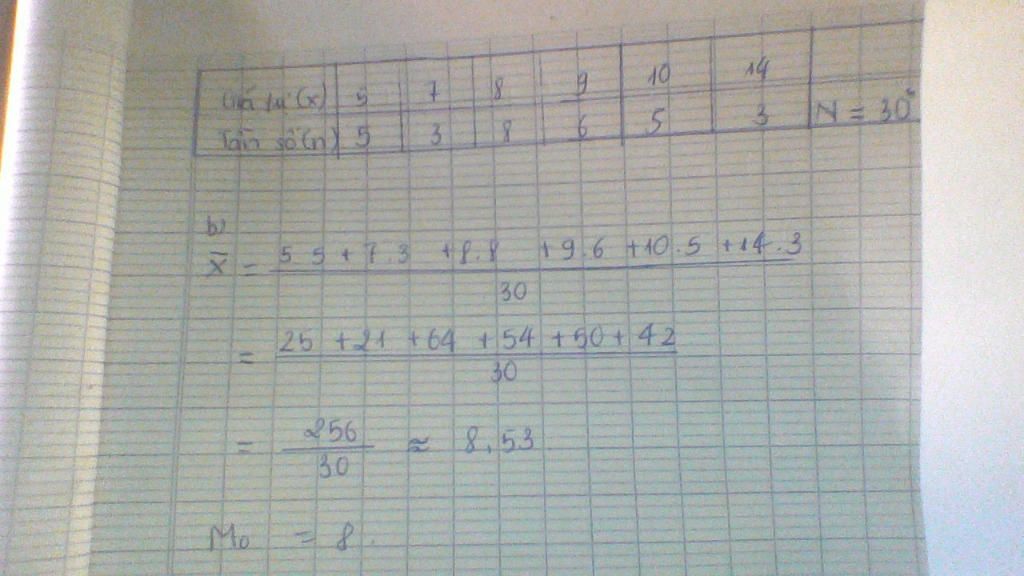 Giá trị (x) 5 7 8 9 10 14
Tần số (n) 5 3 8 6 5 3 N = 30
b)
X̄ = 5 5 + 7.3 + 8.8 + 9.6 + 10.5 + 14.3
30
= 25 + 21 + 64 + 54 + 50 + 42
30
= 256 ≈ 8,53
30
M₀ = 8.